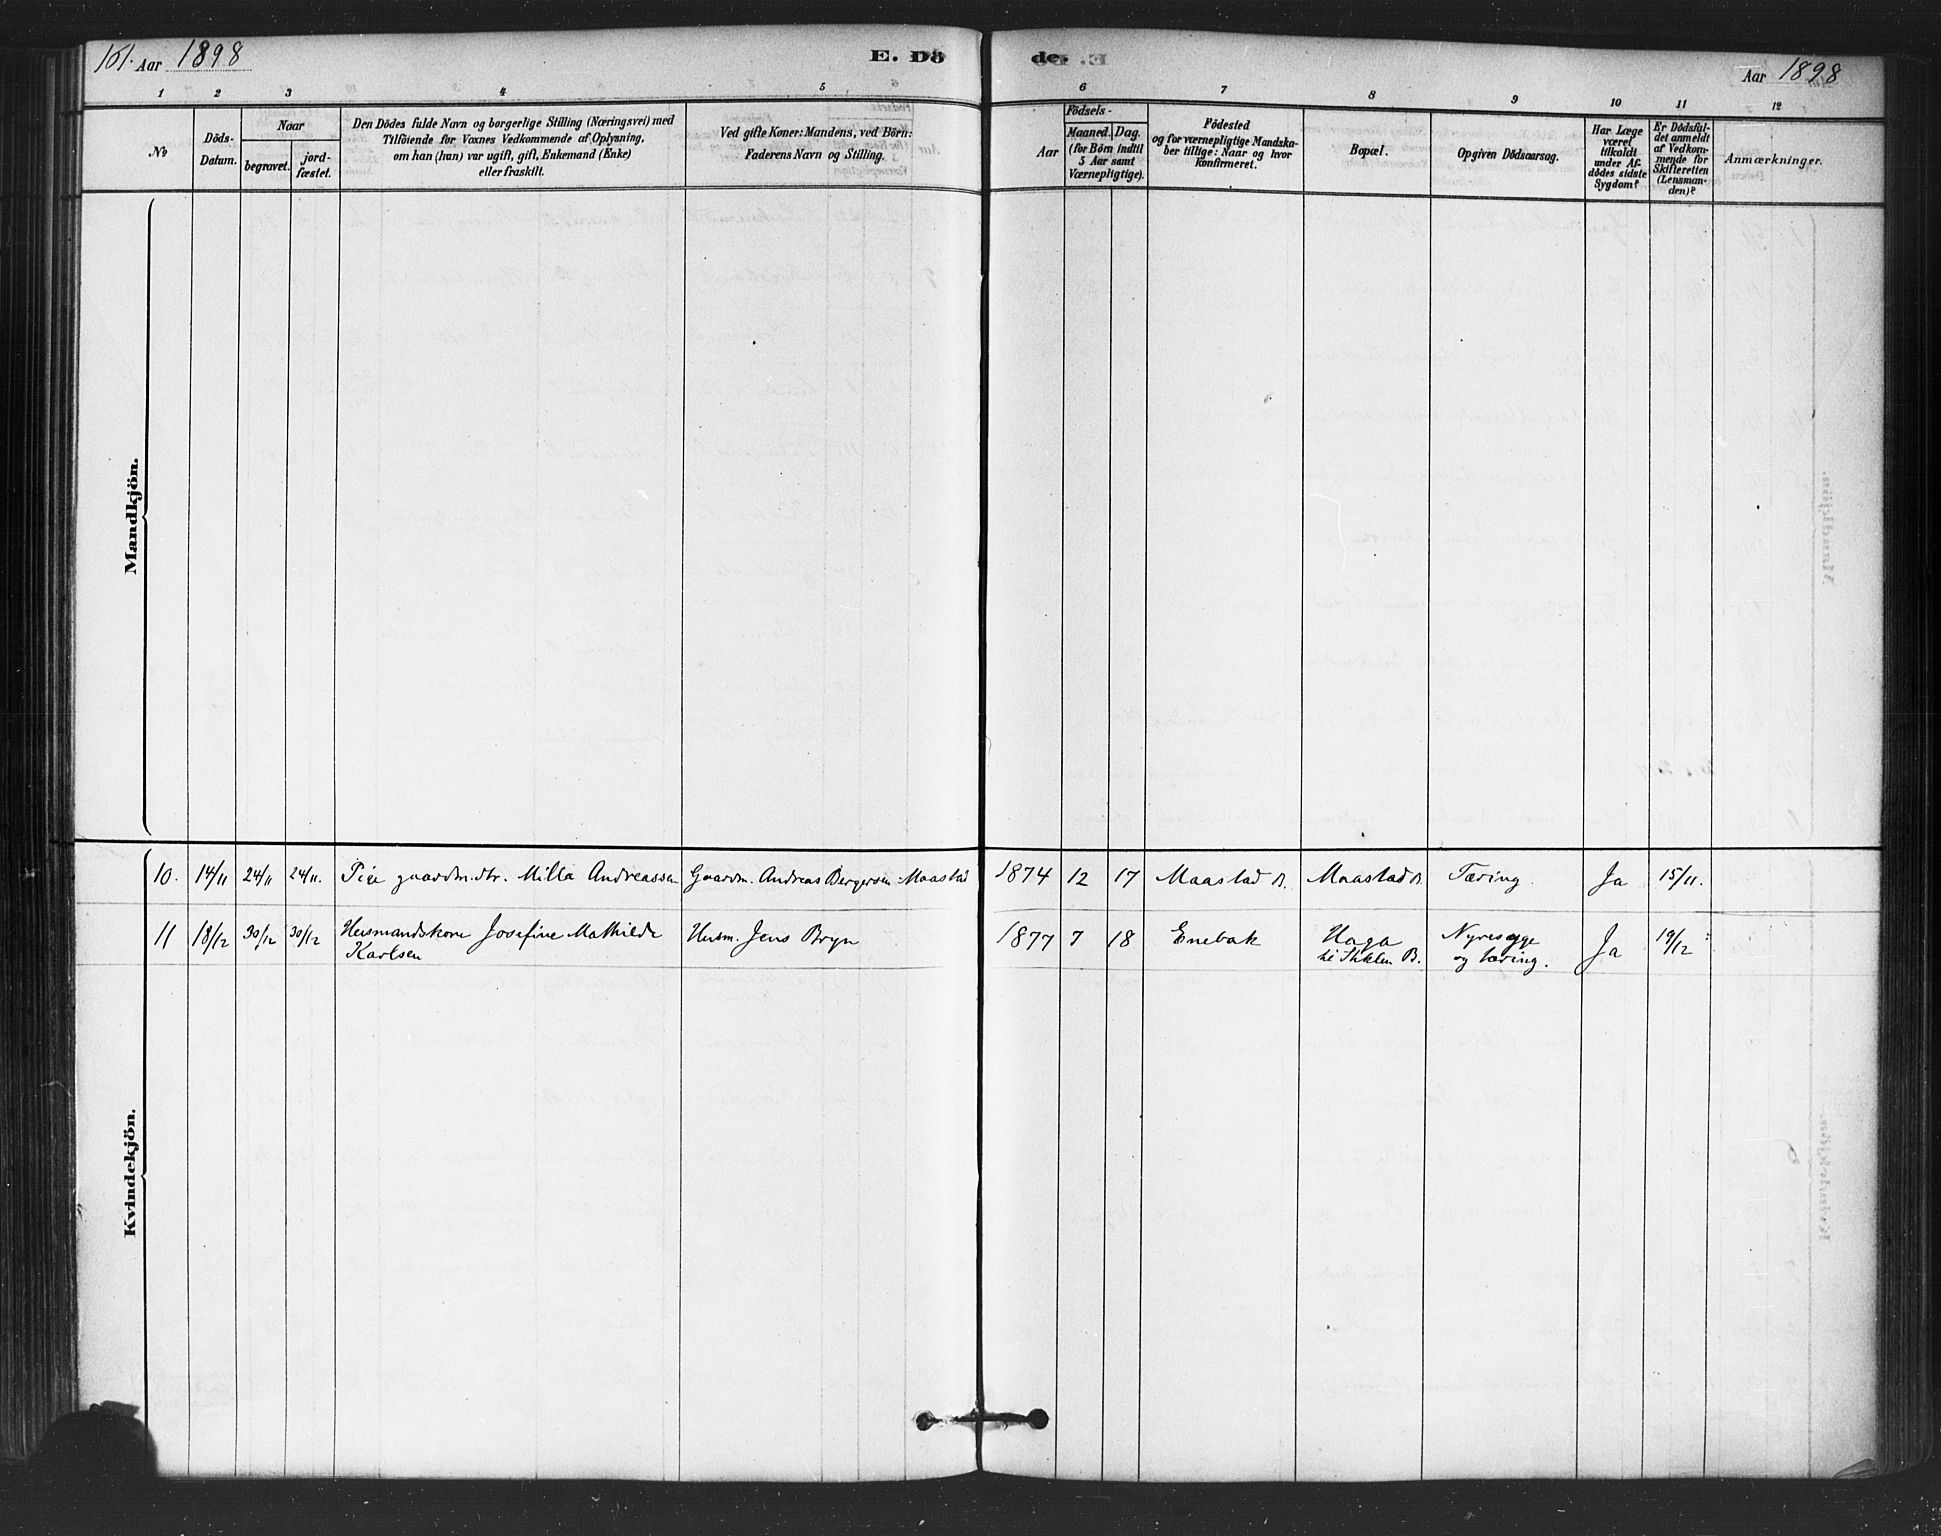 101. Aar 1898
E. Dö
de.
Aar 1898
1 2 3 4 5 6 7 8 9 10 11 12
No
Döds-
Datum.
Naar
begravet.
jord-
fæstet.
Den Dödes fulde Navn og borgerlige Stilling (Næringsvei) med
Tilföiende for Voxnes Vedkommende af Oplysning,
om han (hun) var ugift, gift, Enkemand (Enke)
eller fraskilt.
Ved gifte Koner: Mandens, ved Börn:
Faderens Navn og Stilling.
Födsels-
Aar
Maaned. Dag.
(for Börn indtil
5 Aar samt
Værnepligtige).
Födested
og for værnepligtige Mandska-
ber tillige: Naar og hvor
konfirmeret.
Bopæl.
Opgiven Dödsaarsag.
Har Læge
været
tilkaldt
under Af-
dödes sidste
Sygdom?
Er Dödsfal-
det anmeldt
af Vedkom-
mende for
Skifteretten
(Lensman-
den)?
Anmærkninger.
Mandkjön.
Kvindekjön.
10. 14/11 24/11 24/11. Pige gaardm.dtr. Milla Andreassen Gaardm. Andreas Bergersen Maastad 1874 12 17 Maastad B. Maastad B. Tæring. Ja 15/11.
11 18/12 30/12 30/12 Husmandskone Josefine Mathilde Husm. Jens Bryn 1877 7 18 Enebak Haga Nyresyge Ja 19/12
Karlsen B. og tæring.